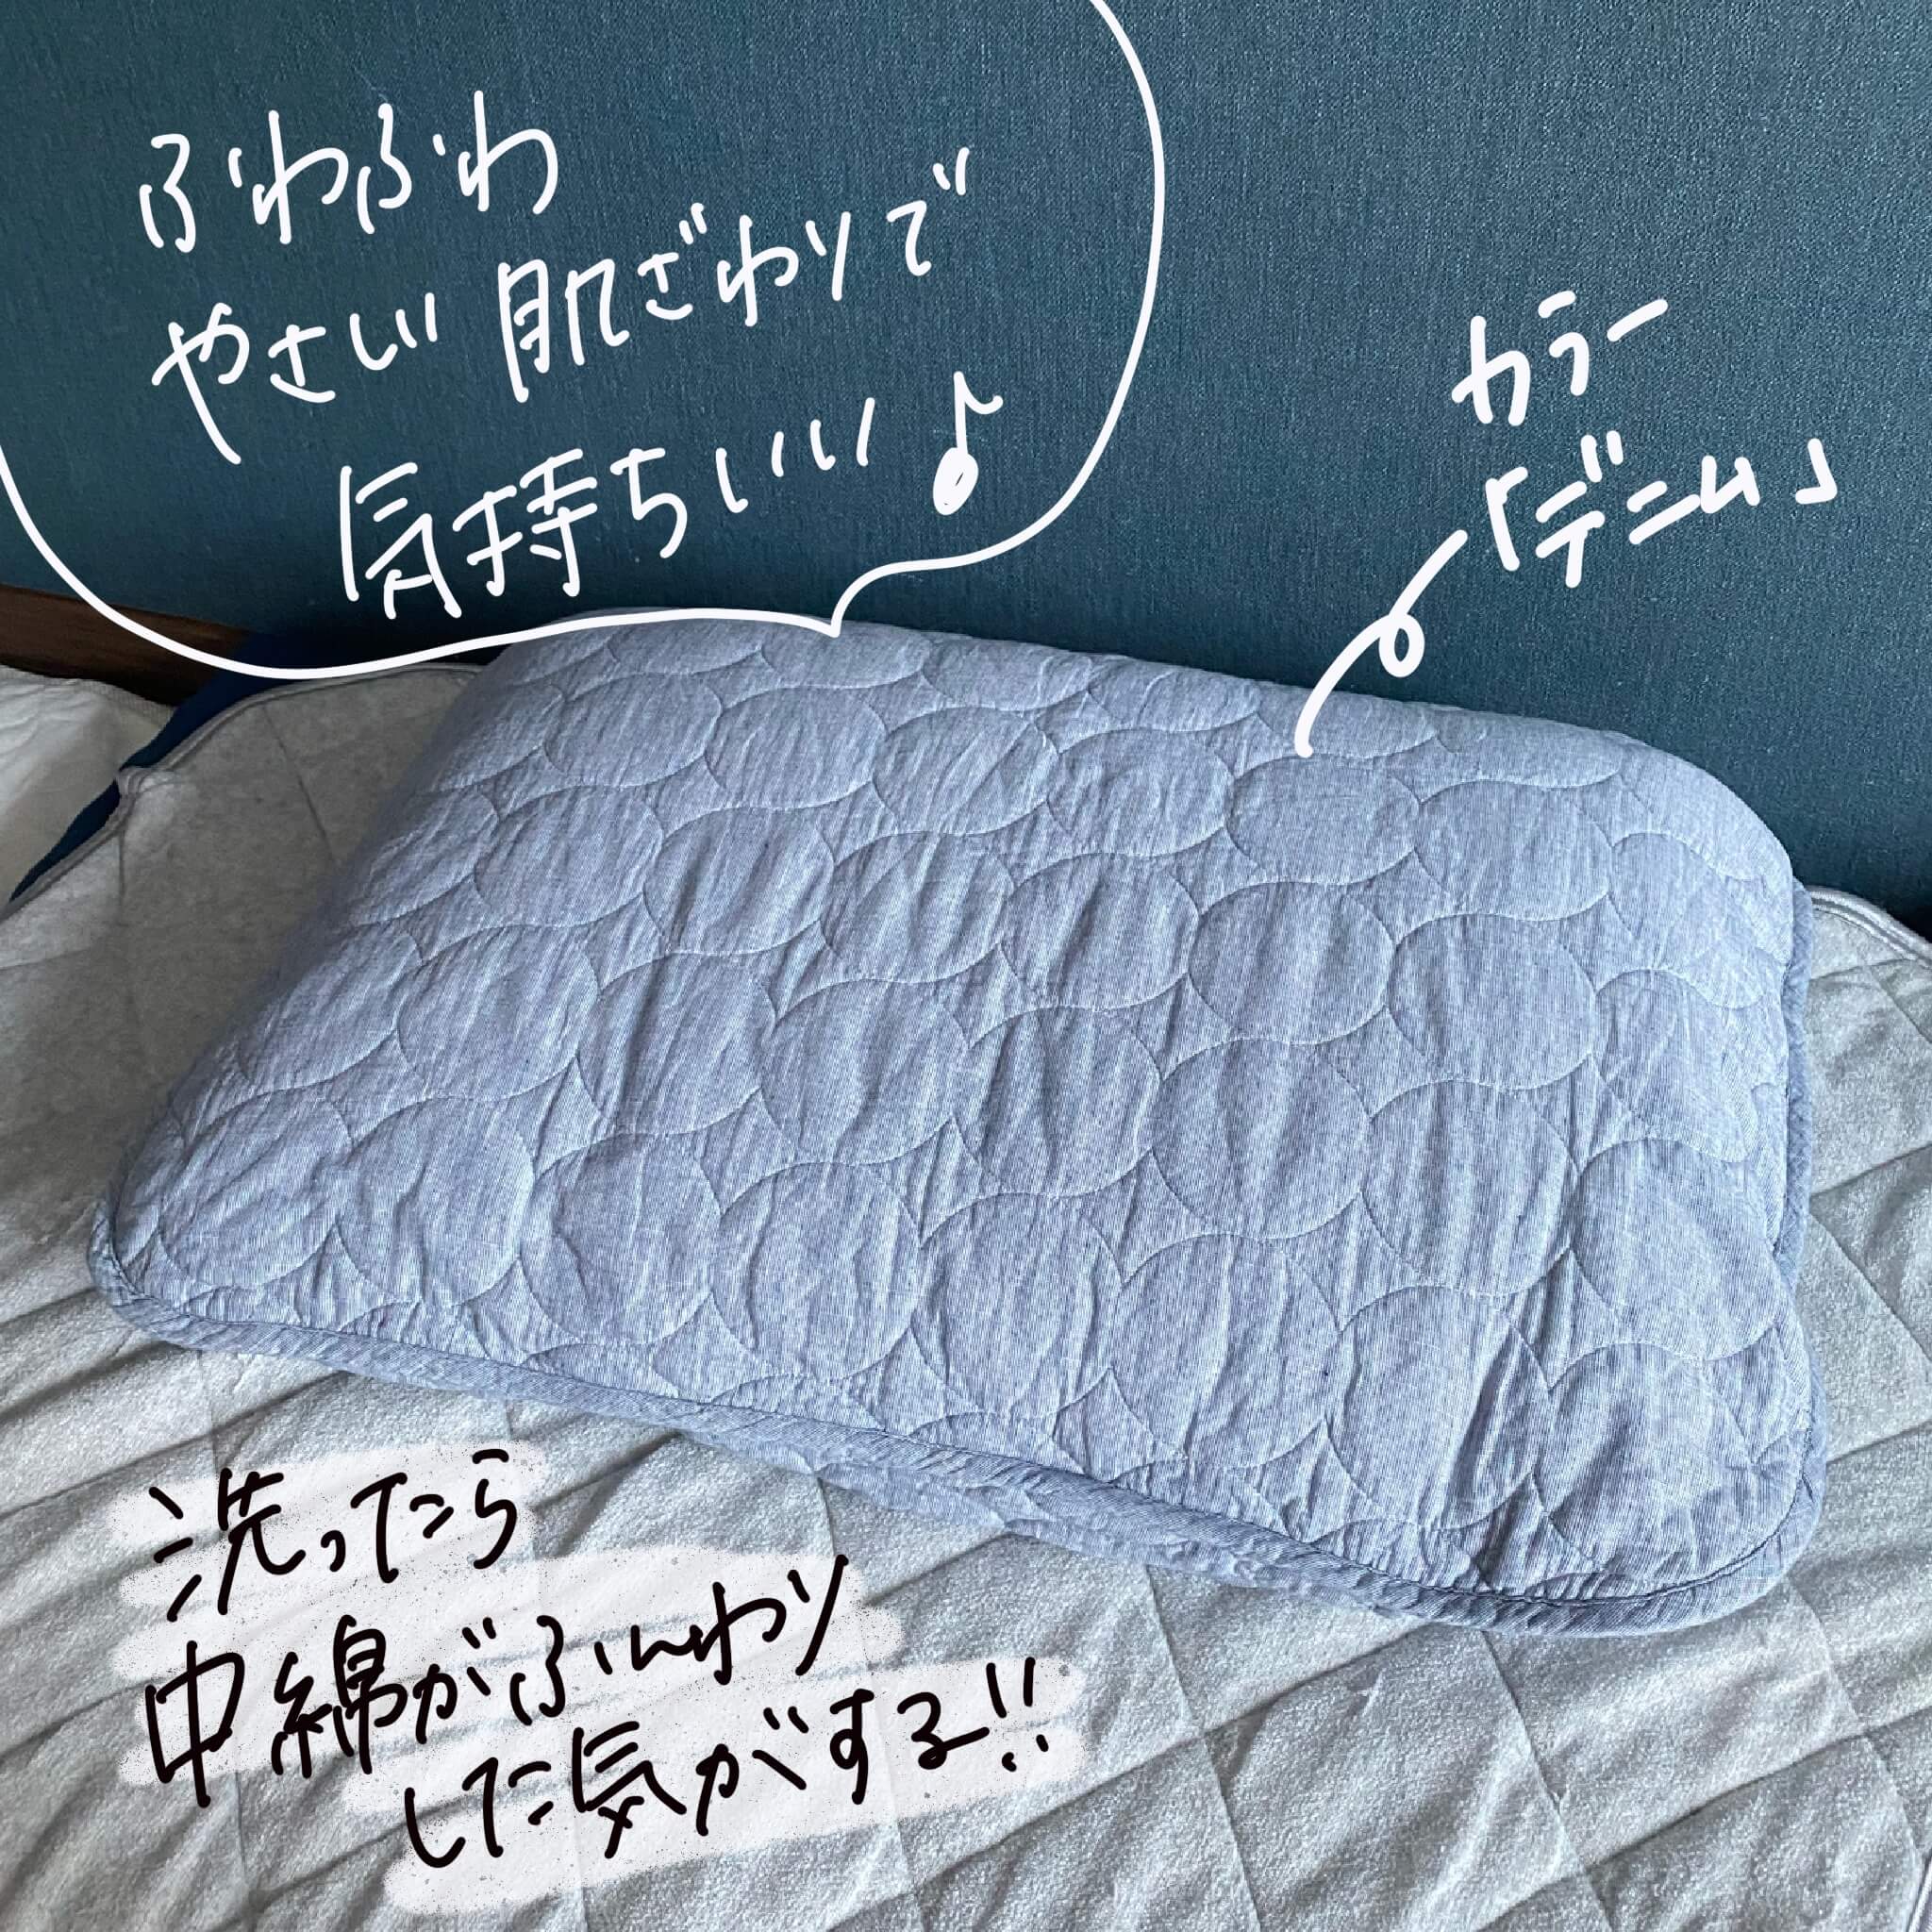 ふわふわ
やさしい肌ざわりで
気持ちいい♪
カラー
「デニム」
洗ったら
中綿がふんわり
した気がする!!